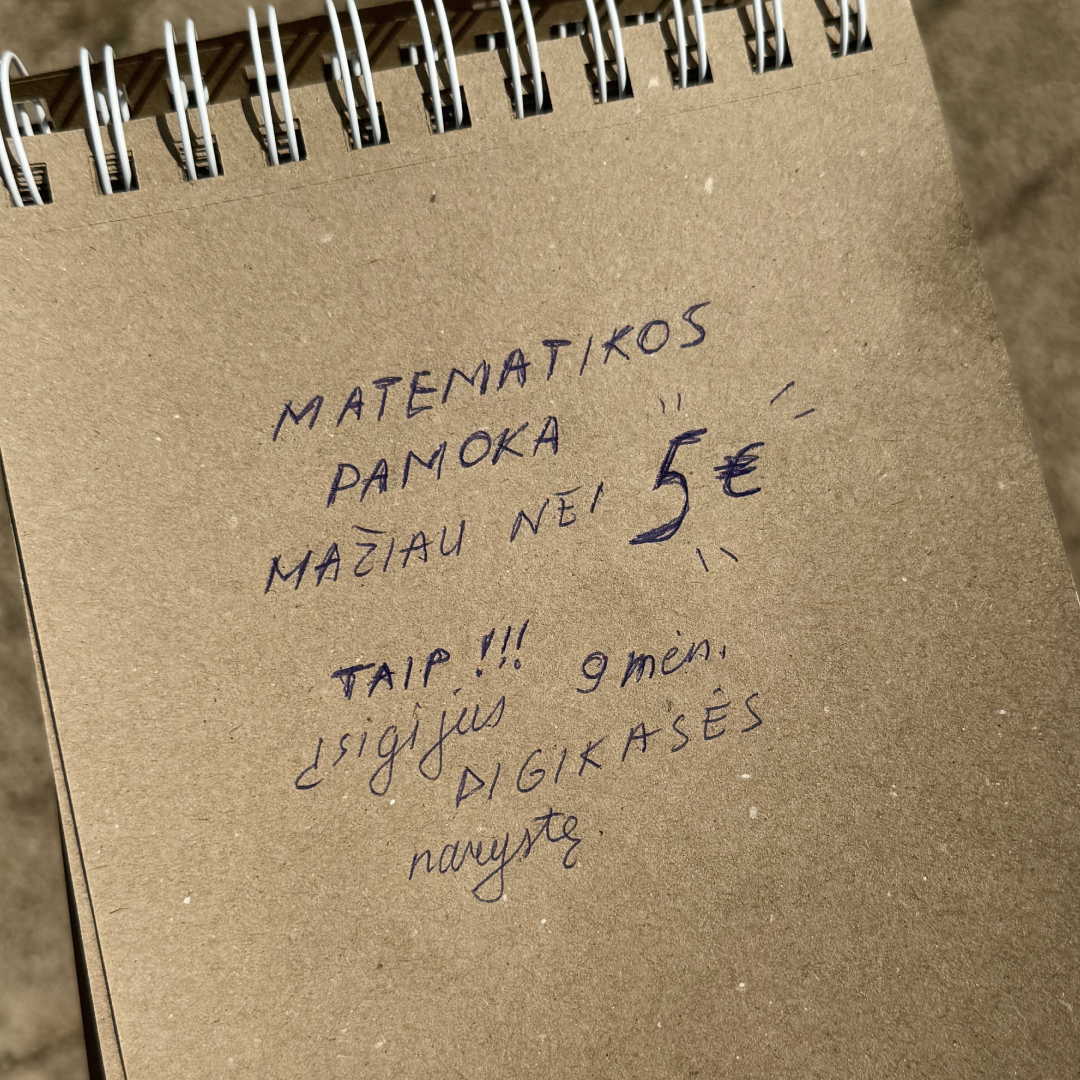 MATEMATIKOS
PAMOKA
MAŽIAU NEI 5 €
TAIP!!! 9 mėn.
įsigijus
DIGIKASĖS
narystę.